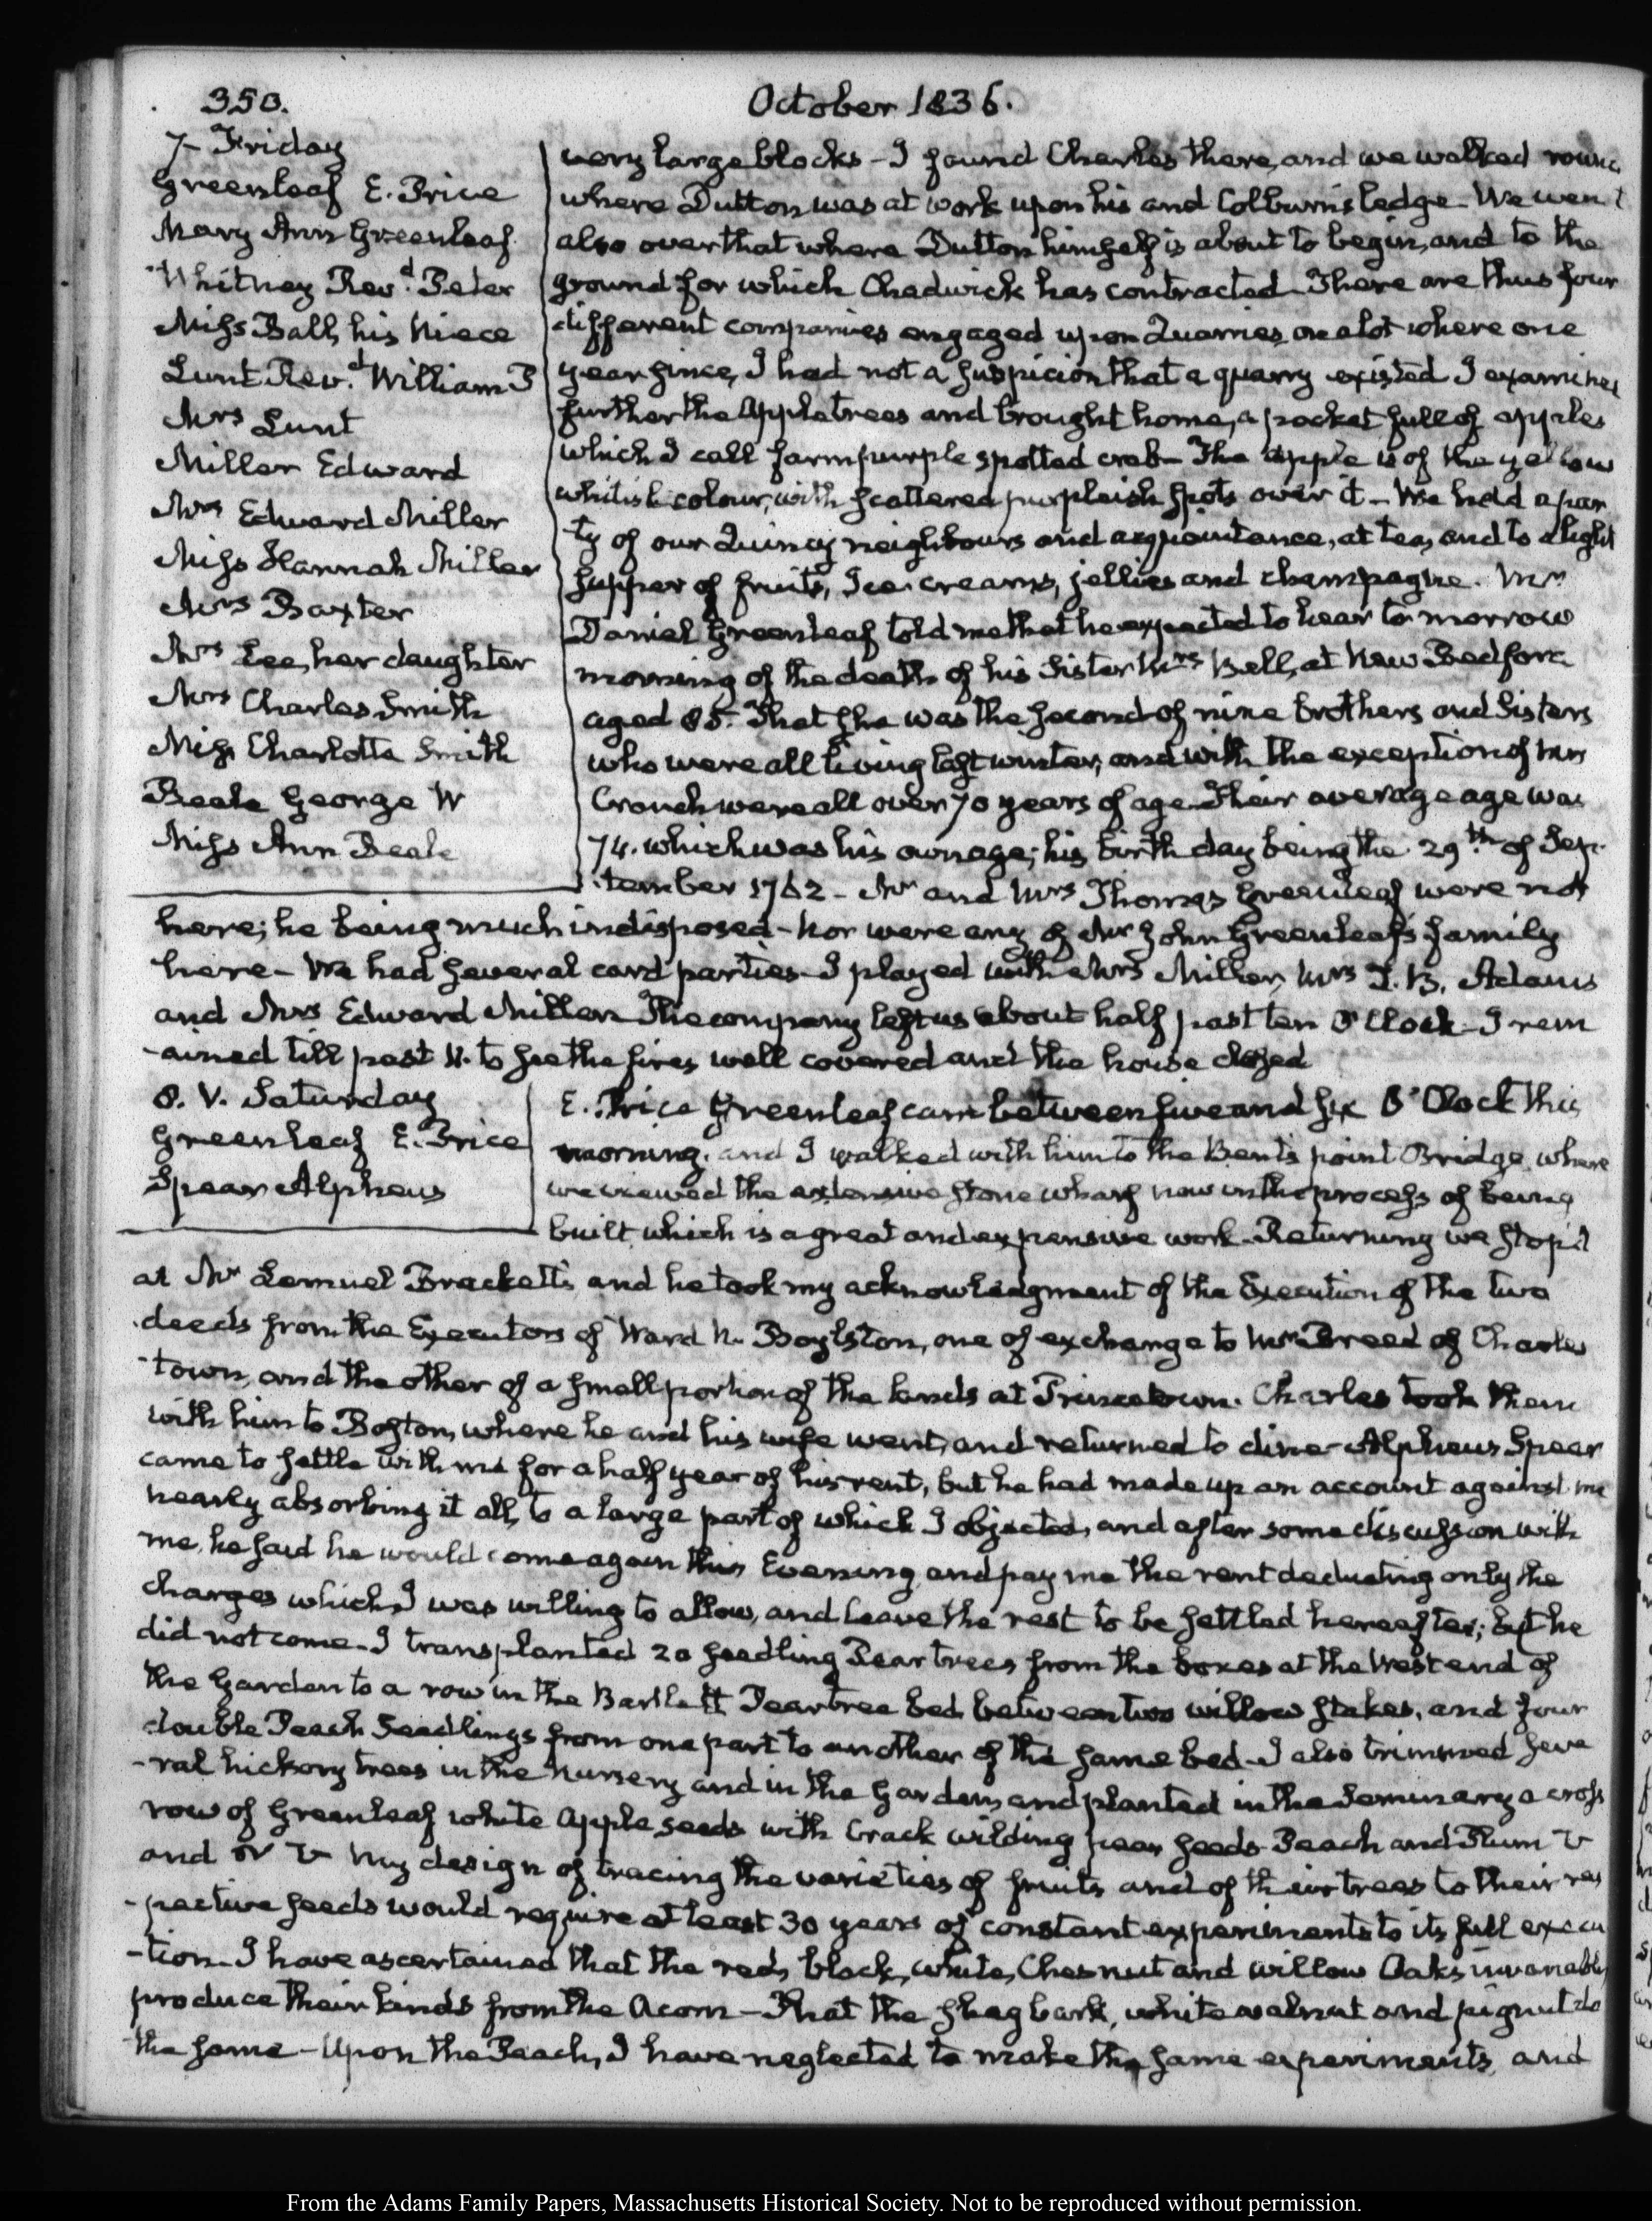 350.
October 1836.
7– Friday
Greenleaf E. Price
Mary Ann Greenleaf
Whitney Revd. Peter
Miss Ball, his Niece
Lunt Revd. William P
Mrs Lunt
Miller Edward
Mrs Edward Miller
Miss Hannah Miller
Mrs Baxter
Mrs Lee, her daughter
Mrs Charles Smith
Miss Charlotte Smith
Beale George W
Miss Ann Beale
very large blocks – I found Charles there, and we walked round
where Dutton was at work upon his and Colburn's ledge – We went
also over that where Dutton himself is about to begin, and to the
ground for which Chadwick has contracted – There are thus four
different companies engaged upon Quarries, on a lot where one
year since, I had not a suspicion that a quarry existed I examined
further the Apple trees and brought home, a pocket full of apples
which I call farm purple spotted crab – The apple is of the yellow
whitish colour, with scattered purpleish spots over it – We had a par
ty of our Quincy neighbours and acquaintance, at tea, and to a light
supper of fruits, Ice-creams, jellies and champagne. Mr
Daniel Greenleaf told me that he expected to hear to-morrow
morning of the death of his Sister Mrs Bell, at New Bedford
aged 85. That she was the second of nine brothers and Sisters
who were all living last winter, and with the exception of Mrs
Crouch were all over 70 years of age – Their average age was
74. which was his own age; his birth day being the 29th of Sep-
tember 1762 – Mr and Mrs Thomas Greenleaf were not
here; he being much indisposed – Nor were any of Mr John Greenleaf's family
here – We had several card parties – I played with Mrs Miller, Mrs T. B. Adams
and Mrs Edward Miller. The company left us about half past ten O'Clock – I rem
-ained till past 11. to see the fires well covered and the house closed
8. V. Saturday
Greenleaf E. Price
Spear Alpheus
E. Price Greenleaf came between five and six O'Clock this
morning, and I walked with him to the Bent's point Bridge, where
we viewed the extensive stone wharf now in the process of being
built, which is a great and expensive work – Returning we stop'd
at Mr Lemuel Brackett's and he took my acknowledgment of the Execution of the two
deeds from the Executors of Ward N. Boylston, one of exchange to Mr Breed of Charles
-town, and the other of a small portion of the lands at Princetown. Charles took them
with him to Boston, where he and his wife went, and returned to dine – Alpheus Spear
came to settle with me for a half year of his rent, but he had made up an account against me
nearly absorbing it all, to a large part of which I objected, and after some discussion with
me, he said he would come again this Evening and pay me the rent deducting only the
charges which I was willing to allow, and leave the rest to be settled hereafter; but he
did not come – I transplanted 20 seedling Pear trees from the boxes at the West end of
the Garden to a row in the Bartlett Peartree bed between two willow stakes, and four
double Peach Seedlings from one part to another of the same bed – I also trimmed seve
-ral hickory trees in the Nursery and in the Garden, and planted in the Seminary a cross
row of Greenleaf white Apple seeds with Crack wilding pear seeds Peach and Plum V
and My design of tracing the varieties of fruits and of their trees to their res
-pective seeds would require at least 30 years of constant experiments to its full execu
-tion – I have ascertained that the red, black, white, Chesnut and willow Oaks invariably
produce their kinds from the Acorn – That the shagbark, white walnut and pignut do
the same – Upon the Peach, I have neglected to make the same experiments, and
From the Adams Family Papers, Massachusetts Historical Society. Not to be reproduced without permission.